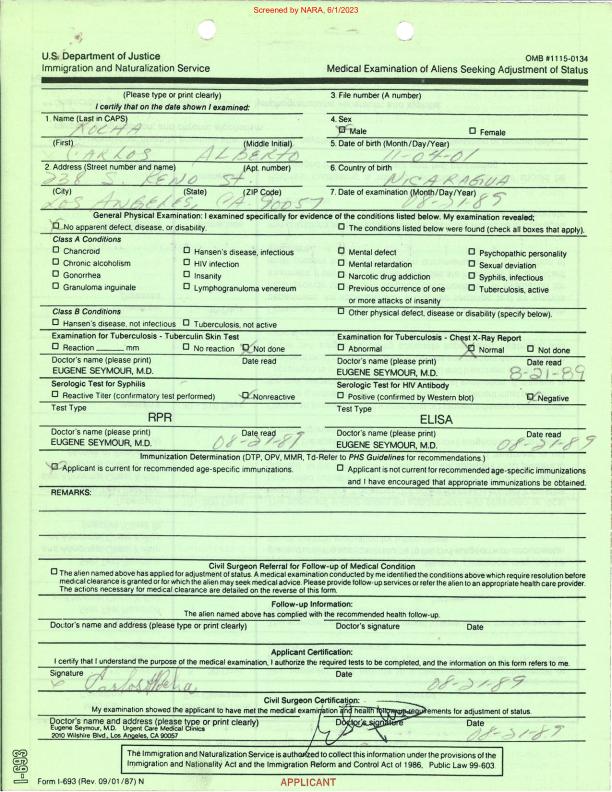 Screened by NARA, 6/1/2023
U.S. Department of Justice
Immigration and Naturalization Service
OMB #1115-0134
Medical Examination of Aliens Seeking Adjustment of Status
(Please type or print clearly)
I certify that on the date shown I examined:
3. File number (A number)
1. Name (Last in CAPS)
ROCHA
4. Sex
Male Female
(First) (Middle Initial)
CARLOS ALBERTO
5. Date of birth (Month/Day/Year)
11-04-01
2. Address (Street number and name) (Apt. number)
238 S. RENO St
6. Country of birth
NICARAGUA
(City) (State) (ZIP Code)
LOS ANGELES, CA 90057
7. Date of examination (Month/Day/Year)
08-21-89
General Physical Examination: I examined specifically for evidence of the conditions listed below. My examination revealed;
No apparent defect, disease, or disability. The conditions listed below were found (check all boxes that apply).
Class A Conditions
Chancroid Hansen's disease, infectious Mental defect Psychopathic personality
Chronic alcoholism HIV infection Mental retardation Sexual deviation
Gonorrhea Insanity Narcotic drug addiction Syphilis, infectious
Granuloma inguinale Lymphogranuloma venereum Previous occurrence of one Tuberculosis, active
or more attacks of insanity
Class B Conditions
Other physical defect, disease or disability (specify below).
Hansen's disease, not infectious Tuberculosis, not active
Examination for Tuberculosis - Tuberculin Skin Test
Reaction mm No reaction Not done
Doctor's name (please print) Date read
EUGENE SEYMOUR, M.D.
Examination for Tuberculosis - Chest X-Ray Report
Abnormal Normal Not done
Doctor's name (please print) Date read
EUGENE SEYMOUR, M.D. 8-21-89
Serologic Test for Syphilis
Reactive Titer (confirmatory test performed) Nonreactive
Test Type
RPR
Doctor's name (please print) Date read
EUGENE SEYMOUR, M.D. 08-21-89
Serologic Test for HIV Antibody
Positive (confirmed by Western blot) Negative
Test Type
ELISA
Doctor's name (please print) Date read
EUGENE SEYMOUR, M.D. 08-21-89
Immunization Determination (DTP, OPV, MMR, Td-Refer to PHS Guidelines for recommendations.)
Applicant is current for recommended age-specific immunizations. Applicant is not current for recommended age-specific immunizations
and I have encouraged that appropriate immunizations be obtained.
REMARKS:
Civil Surgeon Referral for Follow-up of Medical Condition
The alien named above has applied for adjustment of status. A medical examination conducted by me identified the conditions above which require resolution before
medical clearance is granted or for which the alien may seek medical advice. Please provide follow-up services or refer the alien to an appropriate health care provider.
The actions necessary for medical clearance are detailed on the reverse of this form.
Follow-up Information:
The alien named above has complied with the recommended health follow-up.
Doctor's name and address (please type or print clearly) Doctor's signature Date
Applicant Certification:
I certify that I understand the purpose of the medical examination, I authorize the required tests to be completed, and the information on this form refers to me.
Signature Date
Carlos Rocha 08-21-89
Civil Surgeon Certification:
My examination showed the applicant to have met the medical examination and health follow-up requirements for adjustment of status.
Doctor's name and address (please type or print clearly) Doctor's signature Date
Eugene Seymour, M.D. Urgent Care Medical Clinics
2010 Wilshire Blvd., Los Angeles, CA 90057
08-21-89
The Immigration and Naturalization Service is authorized to collect this information under the provisions of the
Immigration and Nationality Act and the Immigration Reform and Control Act of 1986, Public Law 99-603.
Form I-693 (Rev. 09/01/87) N
APPLICANT